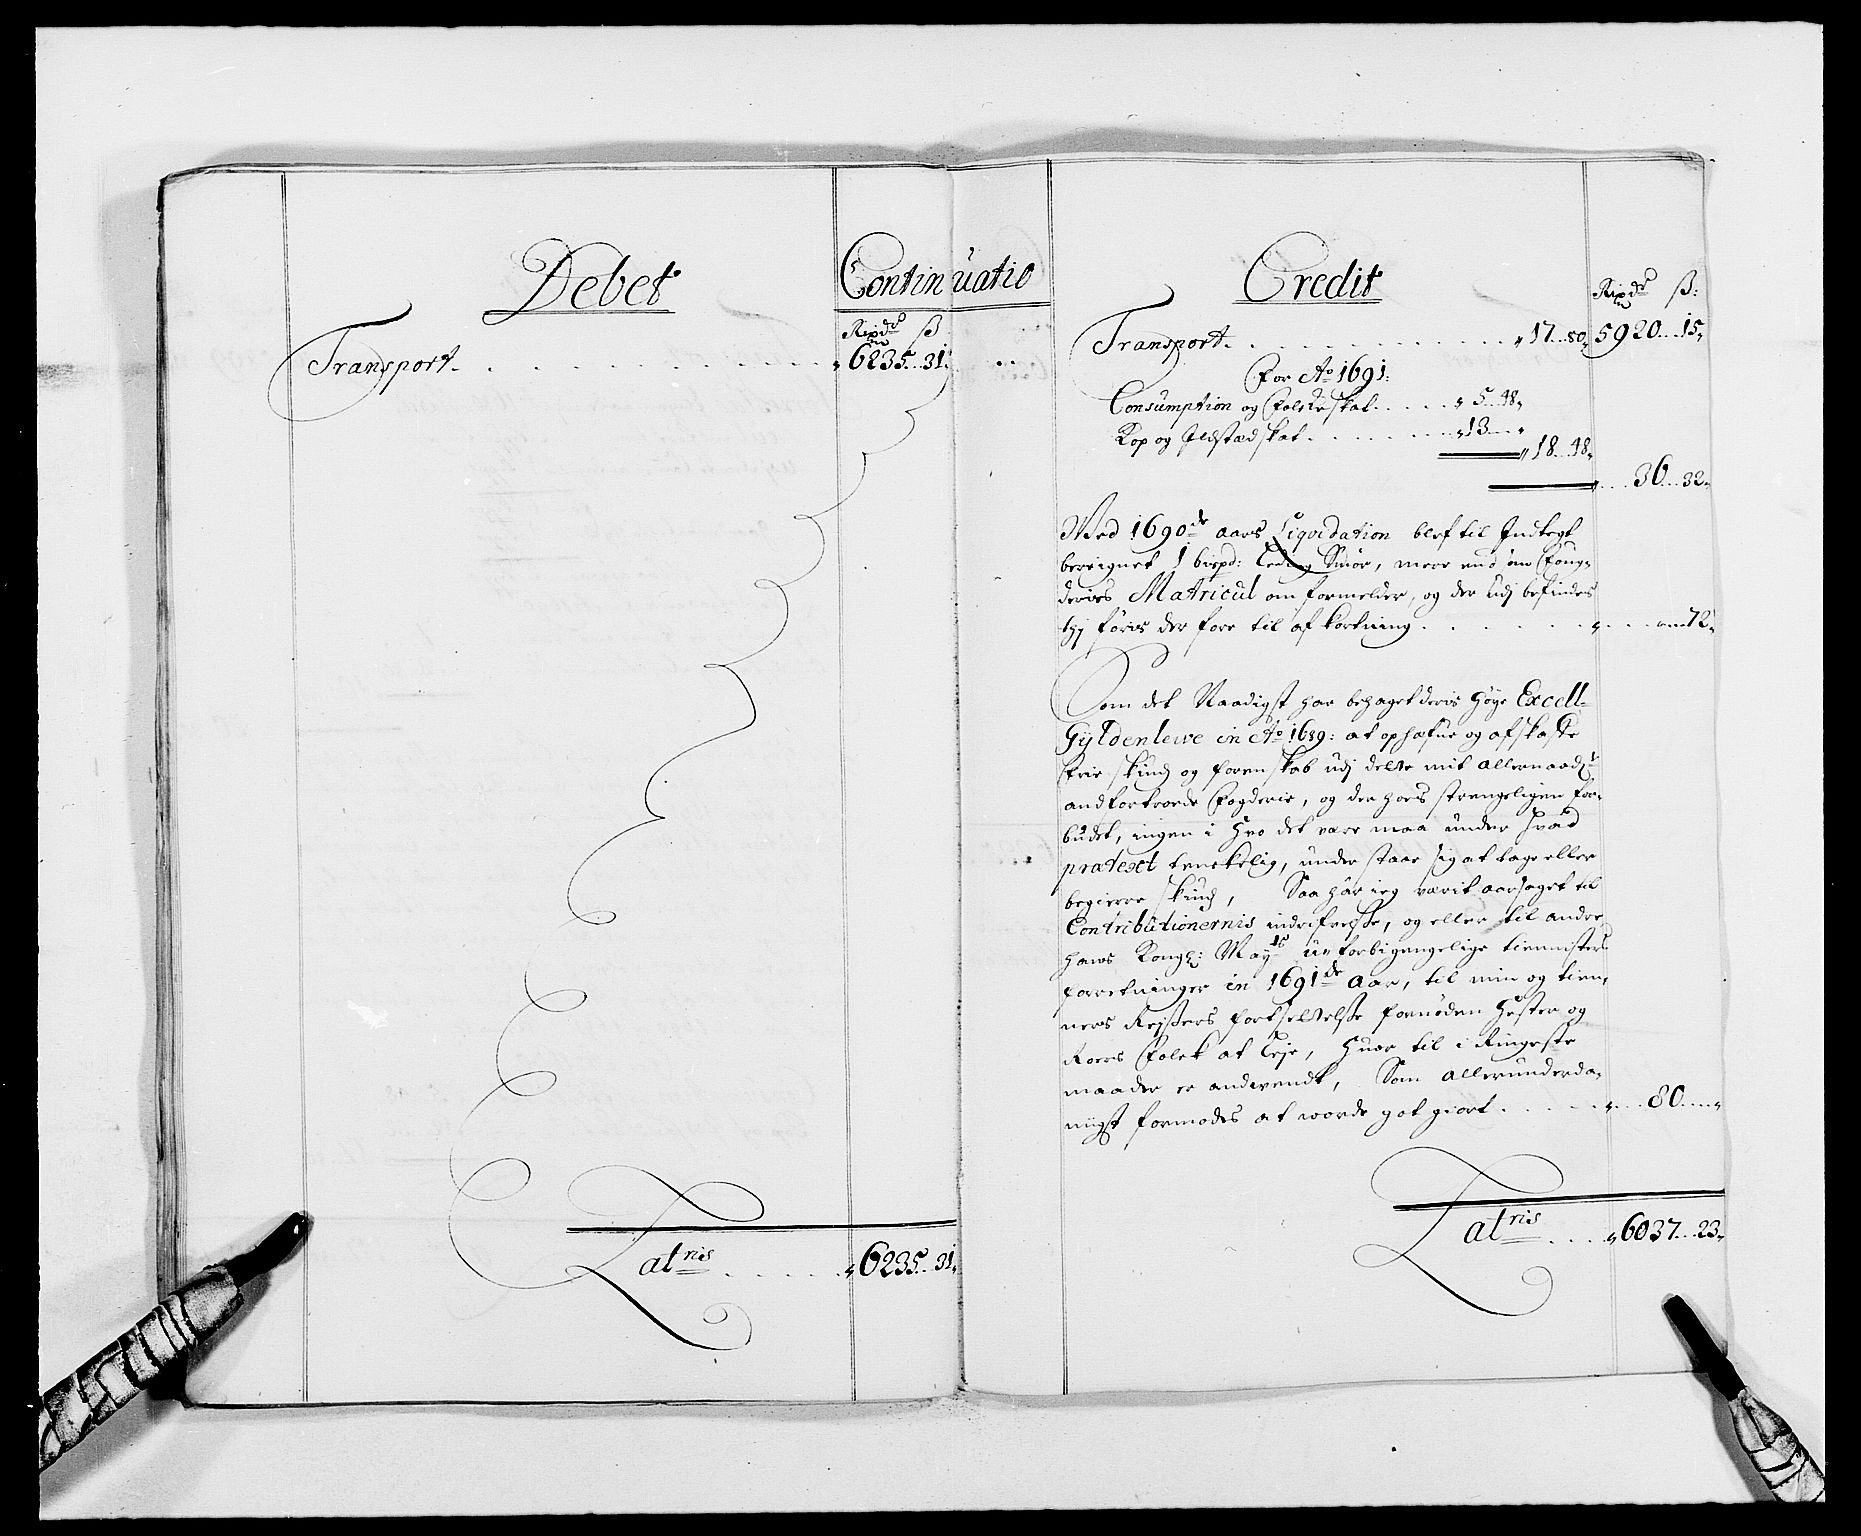 Debet
Continuatio
Rixdr ß
Transport . . . . . . . . . . . . „6235..31„
Latris . . . . . „6235..31„
Credit
Rixdr ß:
Transport . . . . . . . . . . . . „17..80„ 5920...15„
For Ao 1691:
Consumption og Folcke skat . . . . . „ 5..48„
Kop og Ildstæd skat . . . . . . . „13..„
„18..48„
„...36...32„
Med 1690de aars Liqvidation blef til Indtegt
bereignet 1 bispd: Leding Smør, mere end som Foug-
deries Matricul om formelder, og der udj befindes
thj føris der fore til af kortning . . . . . . . „.....72„
Som det Naadigst har behaget deris Høye Excell-
Gÿldenlewe in Ao 1689: at ophæfue og afskaffe
frie skiuds og forenskab udj dette mit allernaadigst
andfortroede Fogderie, og der hoes strengeligen for-
budet, ingen i Hvo det være maa under hvad
prætext tenckelig, under staar sig at tage eller
begierre skiuds, Saa har ieg værit aarsaget til
Contributionernis indrifvelse, og eller til andre
hans Kongl: Mayts u-forbigengelige tiennisters
forretninger in 1691de Aar, til min og tien-
ners Reysers fortsettelse fornøden Hester og
Roers Folck at leje, Huor til i Ringeste
maader er andvendt, Som allerunderda-
nigst formodes at worde got giort . . . . . „...80....„
Latris . . . . „6037...23„